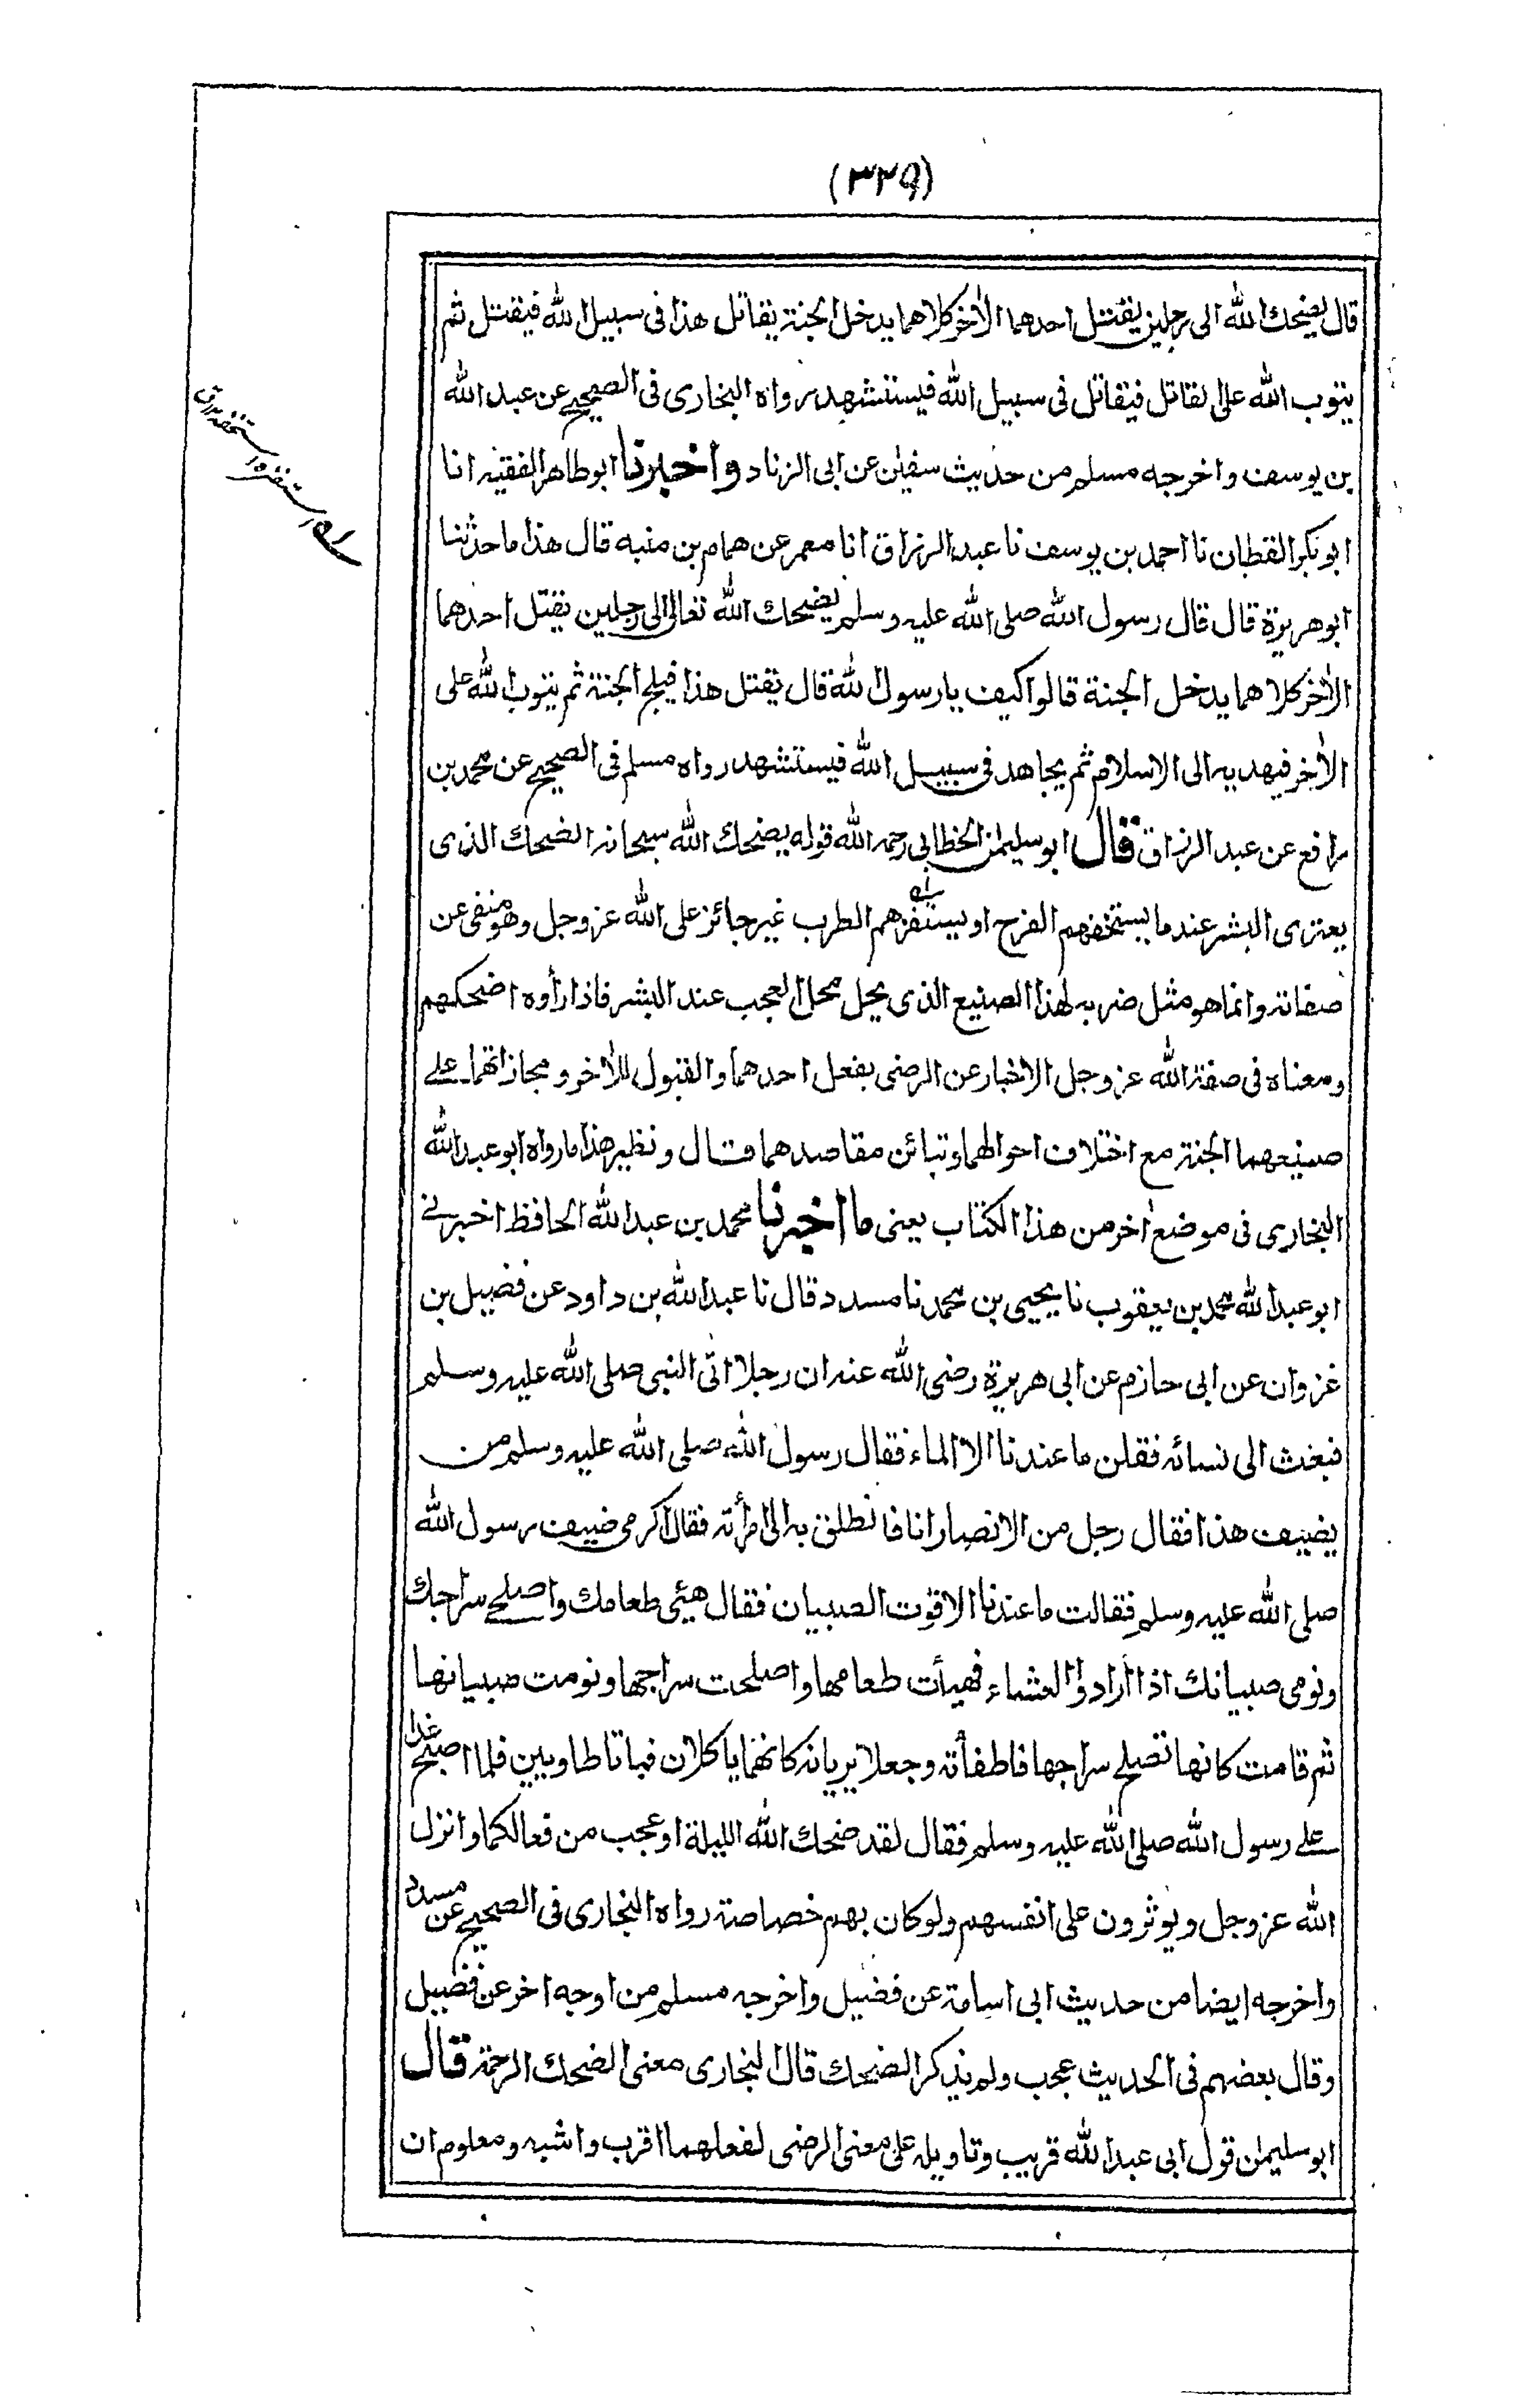 (٣٢٩)
قال يضحك الله الى رجلين يقتتل احدهما الأخر كلاهما يدخل الجنة يقاتل هذا فى سبيل الله فيقتل ثم
يتوب الله على القاتل فيقاتل فى سبيل الله فيستشهد رواه البخارى فى الصحيح عن عبد الله
بن يوسف واخرجه مسلم من حديث سفيٰن عن ابى الزناد واخبرنا ابوطاهر الفقيه انا
ابوبكر القطان نا احمد بن يوسف نا عبد الرزاق انا معمر عن همام بن منبه قال هذا ما حدثنا
ابوهريرة قال قال رسول الله صلى الله عليه وسلم يضحك الله تعالى الى رجلين يقتل احدهما
الأخر كلاهما يدخل الجنة قالوا كيف يا رسول الله قال يقتل هذا فيلج الجنة ثم يتوب الله على
الأخر فيهديه الى الاسلام ثم يجاهد فى سبيل الله فيستشهد رواه مسلم فى الصحيح عن محمد بن
رافع عن عبد الرزاق قال ابوسليمٰن الخطابى رحمه الله قوله يضحك الله سبحانه الضحك الذى
يعترى البشر عند ما يستخفهم الفرح او يستفزهم الطرب غير جائز على الله عزوجل وهو منفى عن
صفاته وانما هو مثل ضربه لهذا الصنيع الذى يحل محل العجب عند البشر فاذا رأوه اضحكهم
ومعناه فى صفة الله عزوجل الاخبار عن الرضى بفعل احدهما والقبول للأخر ومجازاتهما على
صنيعهما الجنة مع اختلاف احوالهما وتبائن مقاصدهما قال ونظير هذا ما رواه ابوعبد الله
البخارى فى موضع أخر من هذا الكتاب يعنى ما اخبرنا محمد بن عبد الله الحافظ اخبرنے
ابوعبد الله محمد بن يعقوب نا يحيى بن محمد نا مسدد قال نا عبد الله بن داود عن فضيل بن
غزوان عن ابى حازم عن ابى هريرة رضى الله عنه ان رجلا اتى النبى صلى الله عليه وسلم
فبعث الى نسائه فقلن ما عندنا الا الماء فقال رسول الله صلى الله عليه وسلم من
يضيف هذا فقال رجل من الانصار انا فانطلق به الى امرأته فقال اكرمى ضيف رسول الله
صلى الله عليه وسلم فقالت ما عندنا الا قوت الصبيان فقال هيئى طعامك واصلحى سراجك
ونومى صبيانك اذا أرادوا العشاء فهيأت طعامها واصلحت سراجها ونومت صبيانها
ثم قامت كانها تصلح سراجها فاطفأته وجعلا يريانه كانهما يا كلان فباتا طاويين فلما اصبح غدا
على رسول الله صلى الله عليه وسلم فقال لقد ضحك الله الليلة او عجب من فعالكما وانزل
الله عزوجل ويوثرون على انفسهم ولوكان بهم خصاصة رواه البخارى فى الصحيح عن مسدد
واخرجه ايضا من حديث ابى اسامة عن فضيل واخرجه مسلم من اوجه اخر عن فضيل
وقال بعضهم فى الحديث عجب ولم يذكر الضحك قال البخارى معنى الضحك الرحمة قال
ابوسليمٰن قول ابى عبد الله قريب وتاويله على معنى الرضى لفعلهما اقرب واشبه ومعلوم ان